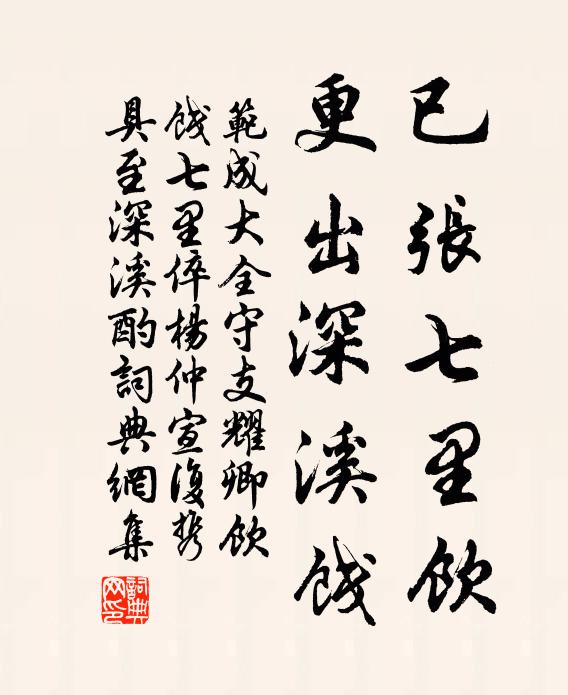 已張七里飲
更出深溪餞
範成大全守支耀卿飲
餞七里倅楊仲宣復攜
具至深溪酌詞典網集
詞典網印